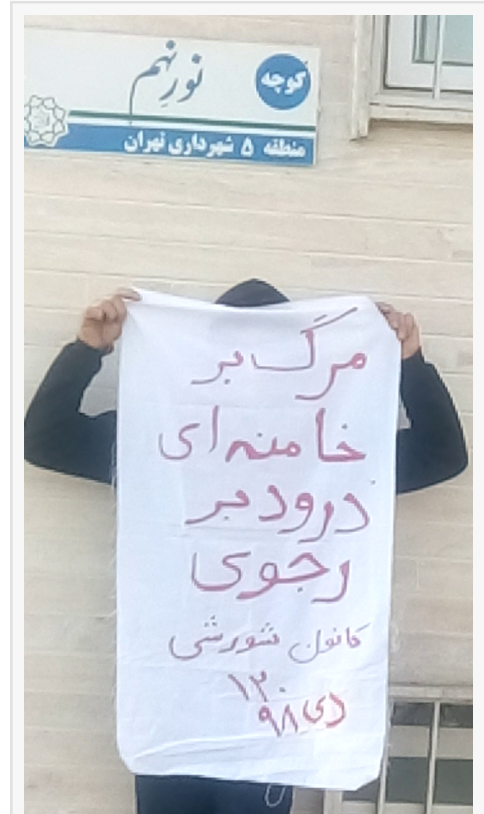 کوچه
نور نهم
منطقه ۵ شهرداری تهران
مرگ بر
خامنه ای
درود بر
رجوی
کانون شورشی
۱۲۰
دی ۹۸